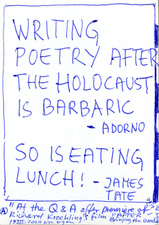 WRITING
POETRY AFTER
THE HOLOCAUST
IS BARBARIC
- ADORNO
SO IS EATING
LUNCH! - JAMES
TATE
"At the Q & A after premiere of
Richard Kroehling's film "AFTER"